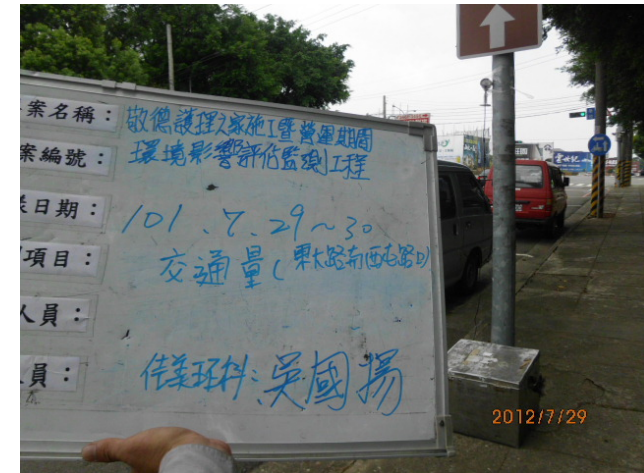 案名稱：敬德護理之家施工暨營運期間
案編號：環境影響評估監測工程
日期：101、7、29～30
項目：交通量(東大路南西屯路口)
人員：
員：佳美环科：吳國揚
2012/7/29